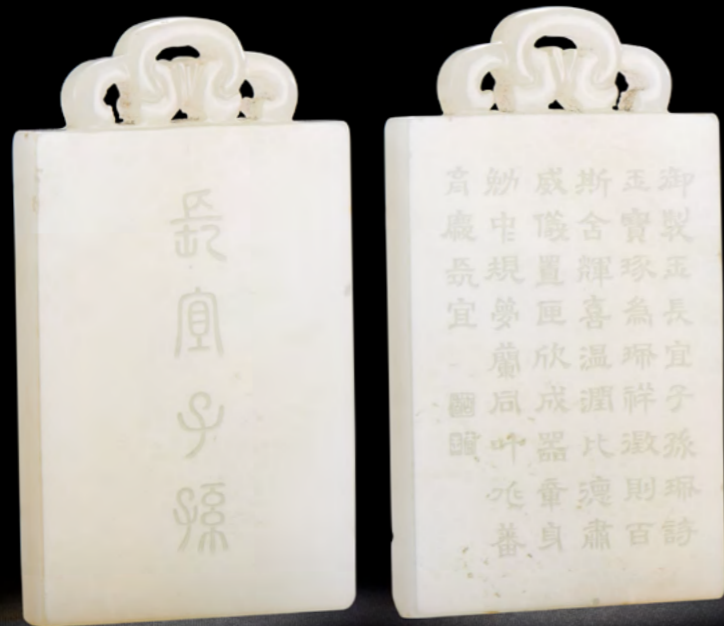 長宜子孫
御製玉長宜子孫珮詩
玉寶琢為珮祥徵則百
斯含輝喜溫潤比德肅
威儀置匣欣成器章身
勉中規夢蘭同叶兆蕃
育慶長宜